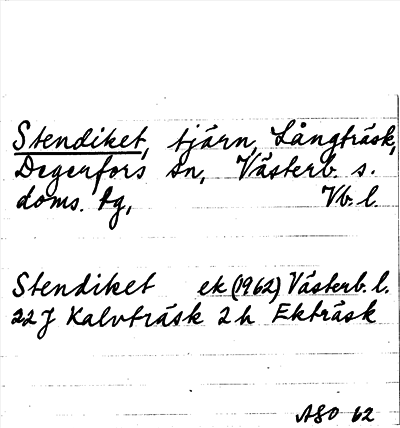 Stendiket, tjärn, Långträsk,
Degerfors sn, Västerb. s.
doms. tg, Vb. l.
Stendiket ek (1962) Västerb. l.
22 J Kalvträsk 2 h Ekträsk
ASO 62